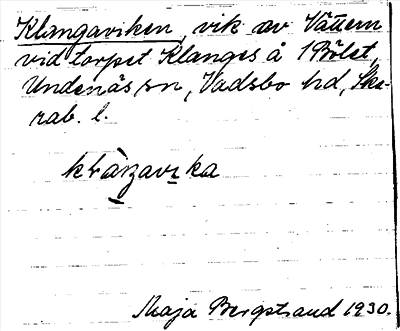 Klangaviken, vik av Vättern
vid torpet Klanges å Bölet,
Undenäs sn, Vadsbo hd, Ska-
rab. l.
Maja Bergstrand 1930.